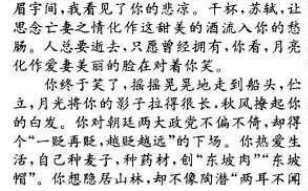 眉宇间,我看见了你的悲凉。干杯,苏轼,让
思念亡妻之情化作这甜美的酒流入你的愁
肠。人总要逝去,只愿曾经拥有,你看,月亮
化作爱妻美丽的脸在对着你笑。
你终于笑了,摇摇晃晃地走到船头,伫
立,月光将你的影子拉得很长,秋风撩起你
的白发。你对朝廷两大政党不偏不倚,却得
个“一贬再贬,越贬越远”的下场。你热爱生
活,自己种麦子,种药材,创“东坡肉”“东坡
帽”。你想隐居山林,却不像陶潜“两耳不闻